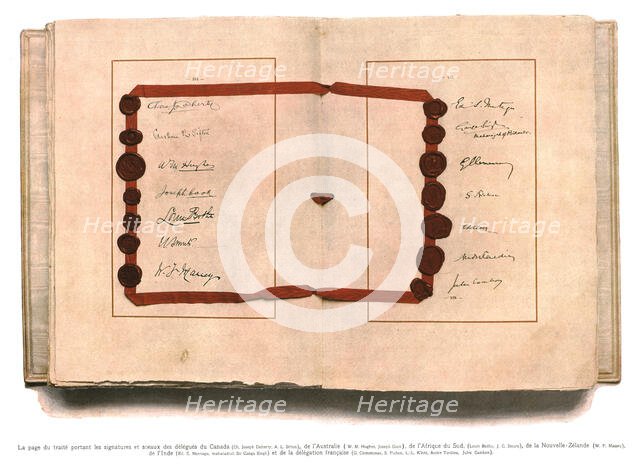 Chas J Doherty
Arthur L Sifton
W M Hughes
Joseph Cook
Louis Botha
J C Smuts
W. F. Massey
Ed. S. Montagu
Ganga Singh
Maharajah of Bikaner
G Clemenceau
S. Pichon
L L Klotz
André Tardieu
Jules Cambon
La page du traité portant les signatures et sceaux des délégués du Canada (Ch. Joseph Doherty, A. L. Sifton), de l'Australie (W. M. Hughes, Joseph Cook), de l'Afrique du Sud, (Louis Botha, J. C. Smuts), de la Nouvelle-Zélande (W. F. Massey),
de l'Inde (Ed. S. Montagu, maharadjah Sir Ganga Singh) et de la délégation française (G. Clemenceau, S. Pichon, L.-L. Klotz, André Tardieu, Jules Cambon).
Heritage Heritage Heritage
Heritage Heritage
Heritage Heritage Heritage